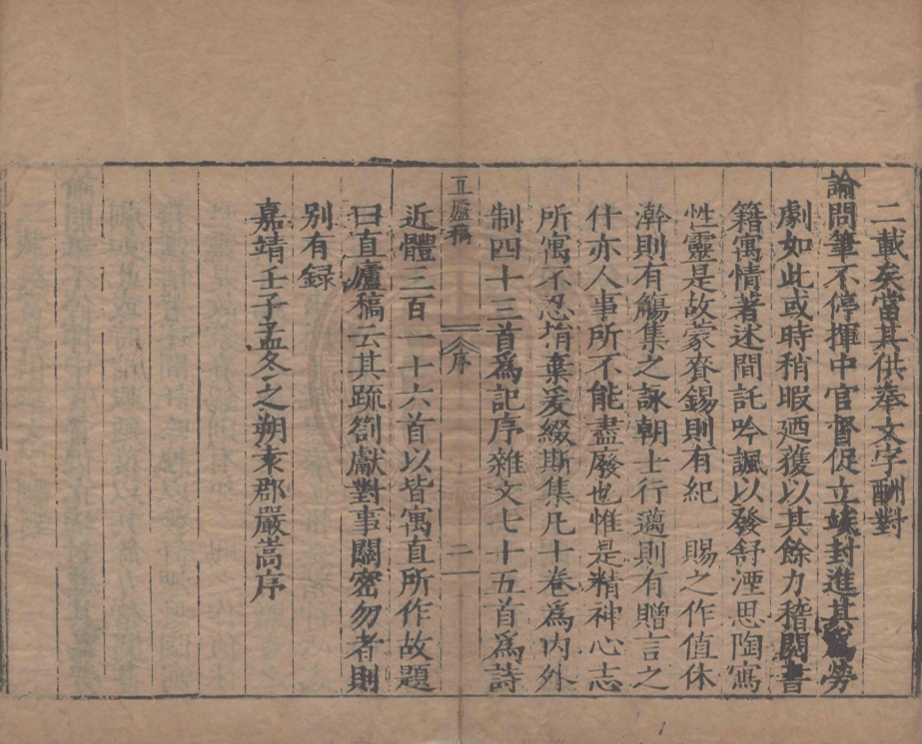 二載矣當其供奉文字酬對
諭問筆不停揮中官督促立竢封進其爲勞
劇如此或時稍暇廼獲以其餘力稽閱書
籍寓情著述間託吟諷以發舒湮思陶寫
性靈是故蒙賚錫則有紀　賜之作值休
澣則有觴集之詠朝士行邁則有贈言之
什亦人事所不能盡廢也惟是精神心志
所寓不忍捐棄爰綴斯集凡十卷爲內外
制四十三首爲記序雜文七十五首爲詩
直廬稿　序　二
近體三百一十六首以皆寓直所作故題
曰直廬稿云其疏劄獻對事關密勿者則
別有録
嘉靖壬子孟冬之朔袁郡嚴嵩序